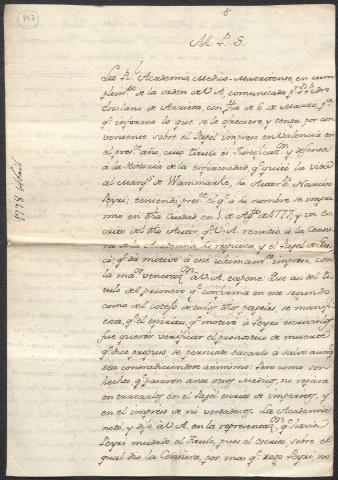 147
M. P. S.
La Rl. Academia Medico-Matritense, en cum
plimto. de la orden de V.A. comunicada pr. Dn. Pedro
Escolano de Arrieta, con fha de 6 de Marzo, pa.
qe. informe lo que se le ofreciere y tenga por con
veniente sobre el Papel impreso en Valencia en
el preste. año, cuio titulo es
a la Historia de la enfermedad, qe. quitó la vida
al cuango de su Autor Dn. Narciso
Peyri; teniendo preste. el qe. a su nombre se impri
mio en dha Ciudad en de Agto. de 1777, y un es
crito del dho Autor, qe. V.A. remitió a la Censu
ra de la Academia, la respuesta, y el Papel de
qe. dá motivo á este ultimamte. impreso, con
la mayor veneracn. á V.A. expone. Que así del ti
tulo del primero qe. confirma en este segundo
como del cotejo de todos dhos papeles, se mani
esta, qe. el espiritu, qe. motivó á Peyri escrivirlos
fue querer verificar el pronostico de muerte
qe. dice propuso, se persuade sacarlo á salvo aunqe.
sea contradiciendose asimismo: Pero como son
hechos qe. pasaron ante otros Medicos, no repara
en tratarlos en el Papel escrito de imperitos, y
en el impreso de no verdaderos. La Academia
notó, y dijo á V.A. en la representacn. qe. havia
Peyri mudado el titulo, pues el escrito sobre el
qual dio la Censura, por mas qe. Peyri, no
1778 Abril